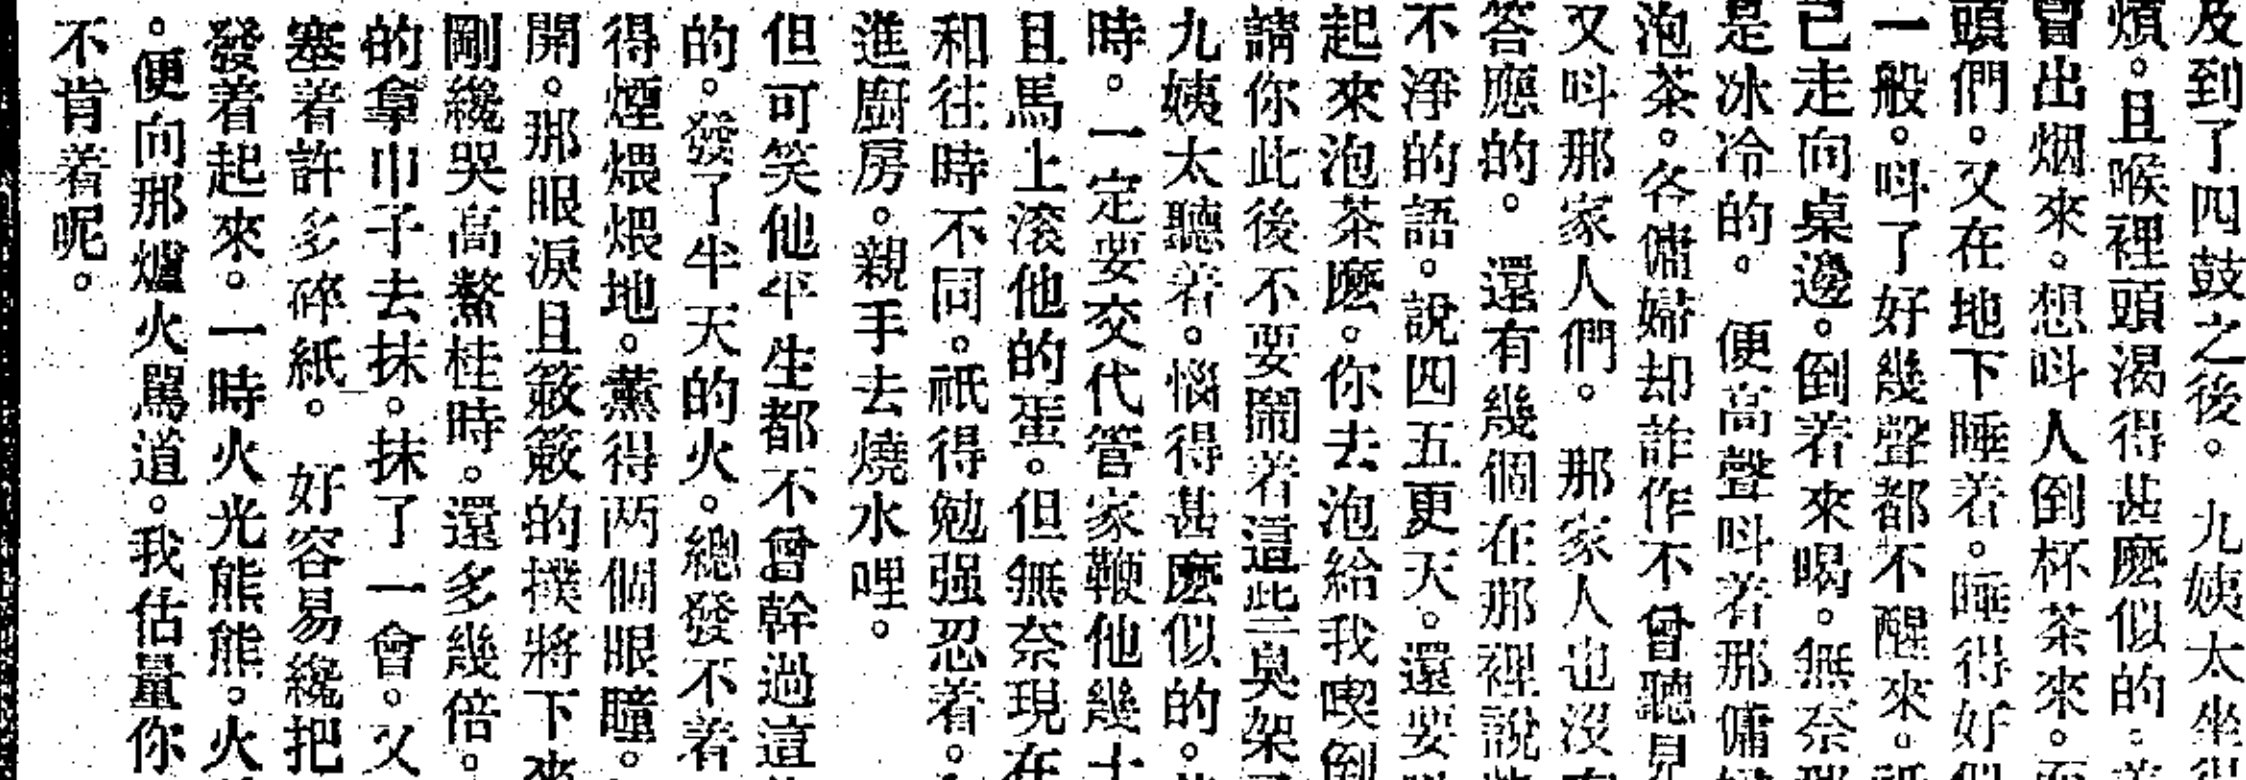 及到了四鼓之後。九姨太坐
煩。且喉裡頭渴得甚麽似的。
曾出烟來。想呌人倒杯茶來。
頭們。又在地下睡着。睡得好
一般。呌了好幾聲都不醒來。祇
已走向桌邊。倒着來喝。無奈
是冰冷的。便高聲呌着那傭
泡茶。各傭婦却詐作不曾聽見
又呌那家人們。那家人也没
答應的。還有幾個在那裡說
不淨的語。說四五更天。還要
起來泡茶麽。你去泡給我喫
請你此後不要鬧着這些臭架
九姨太聽着。惱得甚麽似的。
時。一定要交代管家鞭他幾十
且馬上滚他的蛋。但無奈現在
和往時不同。祇得勉强忍着。
進廚房。親手去燒水哩。
但可笑他平生都不曾幹過這
的。發了半天的火。總發不着
得煙煨煨地。薰得两個眼瞳。
開。那眼淚且簌簌的撲將下來
剛纔哭高鰲桂時。還多幾倍。
的拿巾子去抹。抹了一會。又
塞着許多碎紙。好容易纔把
發着起來。一時火光熊熊。火
。便向那爐火駡道。我估量你
不肯着呢。